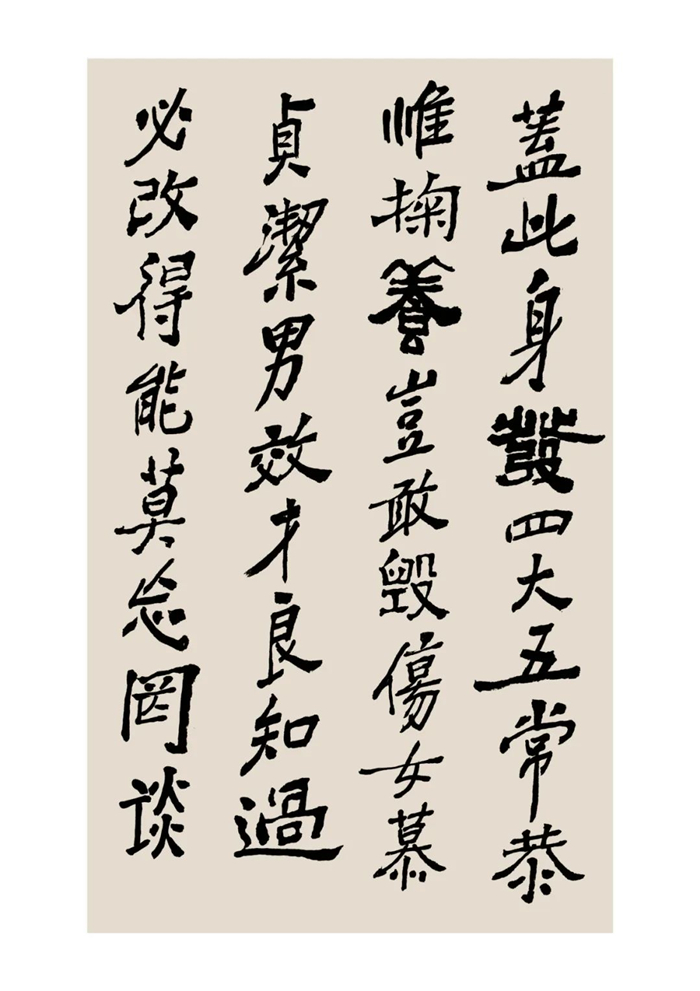 蓋此身發四大五常恭
惟掬養豈敢毀傷女慕
貞潔男效才良知過
必改得能莫忘罔談